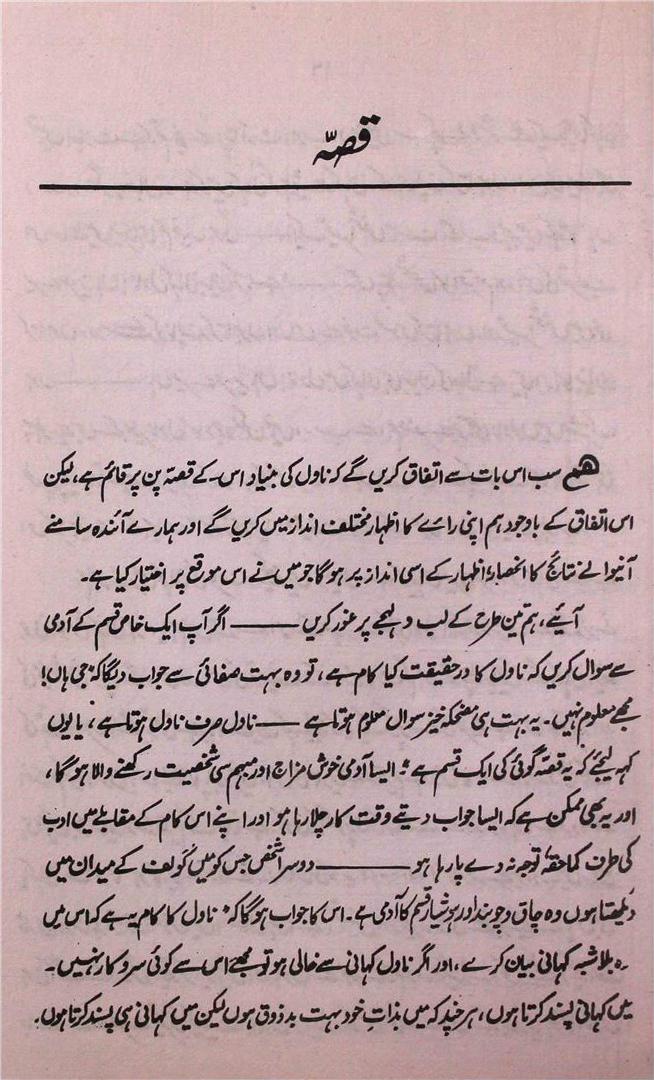 قصّہ
ہم سب اس بات سے اتفاق کریں گے کہ ناول کی بنیاد اس کے قصّہ پن پر قائم ہے، لیکن
اس اتفاق کے باوجود ہم اپنی رائے کا اظہار مختلف انداز میں کریں گے اور ہمارے آئندہ سامنے
آنیوالے نتائج کا انحصار اظہار کے اسی انداز پر ہوگا جو میں نے اس موقع پر اختیار کیا ہے۔
آیئے، ہم تین طرح کے لب و لہجے پر غور کریں ——— اگر آپ ایک خاص قسم کے آدمی
سے سوال کریں کہ ناول کا درحقیقت کیا کام ہے، تو وہ بہت صفائی سے جواب دیگا کہ "جی ہاں!
مجھے معلوم نہیں۔ یہ بہت ہی مضحکہ خیز سوال معلوم ہوتا ہے —— ناول صرف ناول ہوتا ہے، یا یوں
کہہ لیجئے کہ یہ قصّہ گوئی کی ایک قسم ہے"؛ ایسا آدمی خوش مزاج اور مبہم سی شخصیت رکھنے والا ہوگا،
اور یہ بھی ممکن ہے کہ ایسا جواب دیتے وقت کار چلا رہا ہو اور اپنے اس کام کے مقابلے میں ادب
کی طرف کماحقہٗ توجہ نہ دے پا رہا ہو ——— دوسرا شخص جس کو میں گولف کے میدان میں
دیکھتا ہوں وہ چاق و چوبند اور ہوشیار قسم کا آدمی ہے۔ اس کا جواب ہوگا کہ "ناول کا کام یہ ہے کہ اس میں
وہ بلاشبہ کہانی بیان کرے، اور اگر ناول کہانی سے خالی ہو تو مجھے اس سے کوئی سروکار نہیں۔
میں کہانی پسند کرتا ہوں، ہر چند کہ میں بذاتِ خود بہت بدذوق ہوں لیکن میں کہانی ہی پسند کرتا ہوں۔